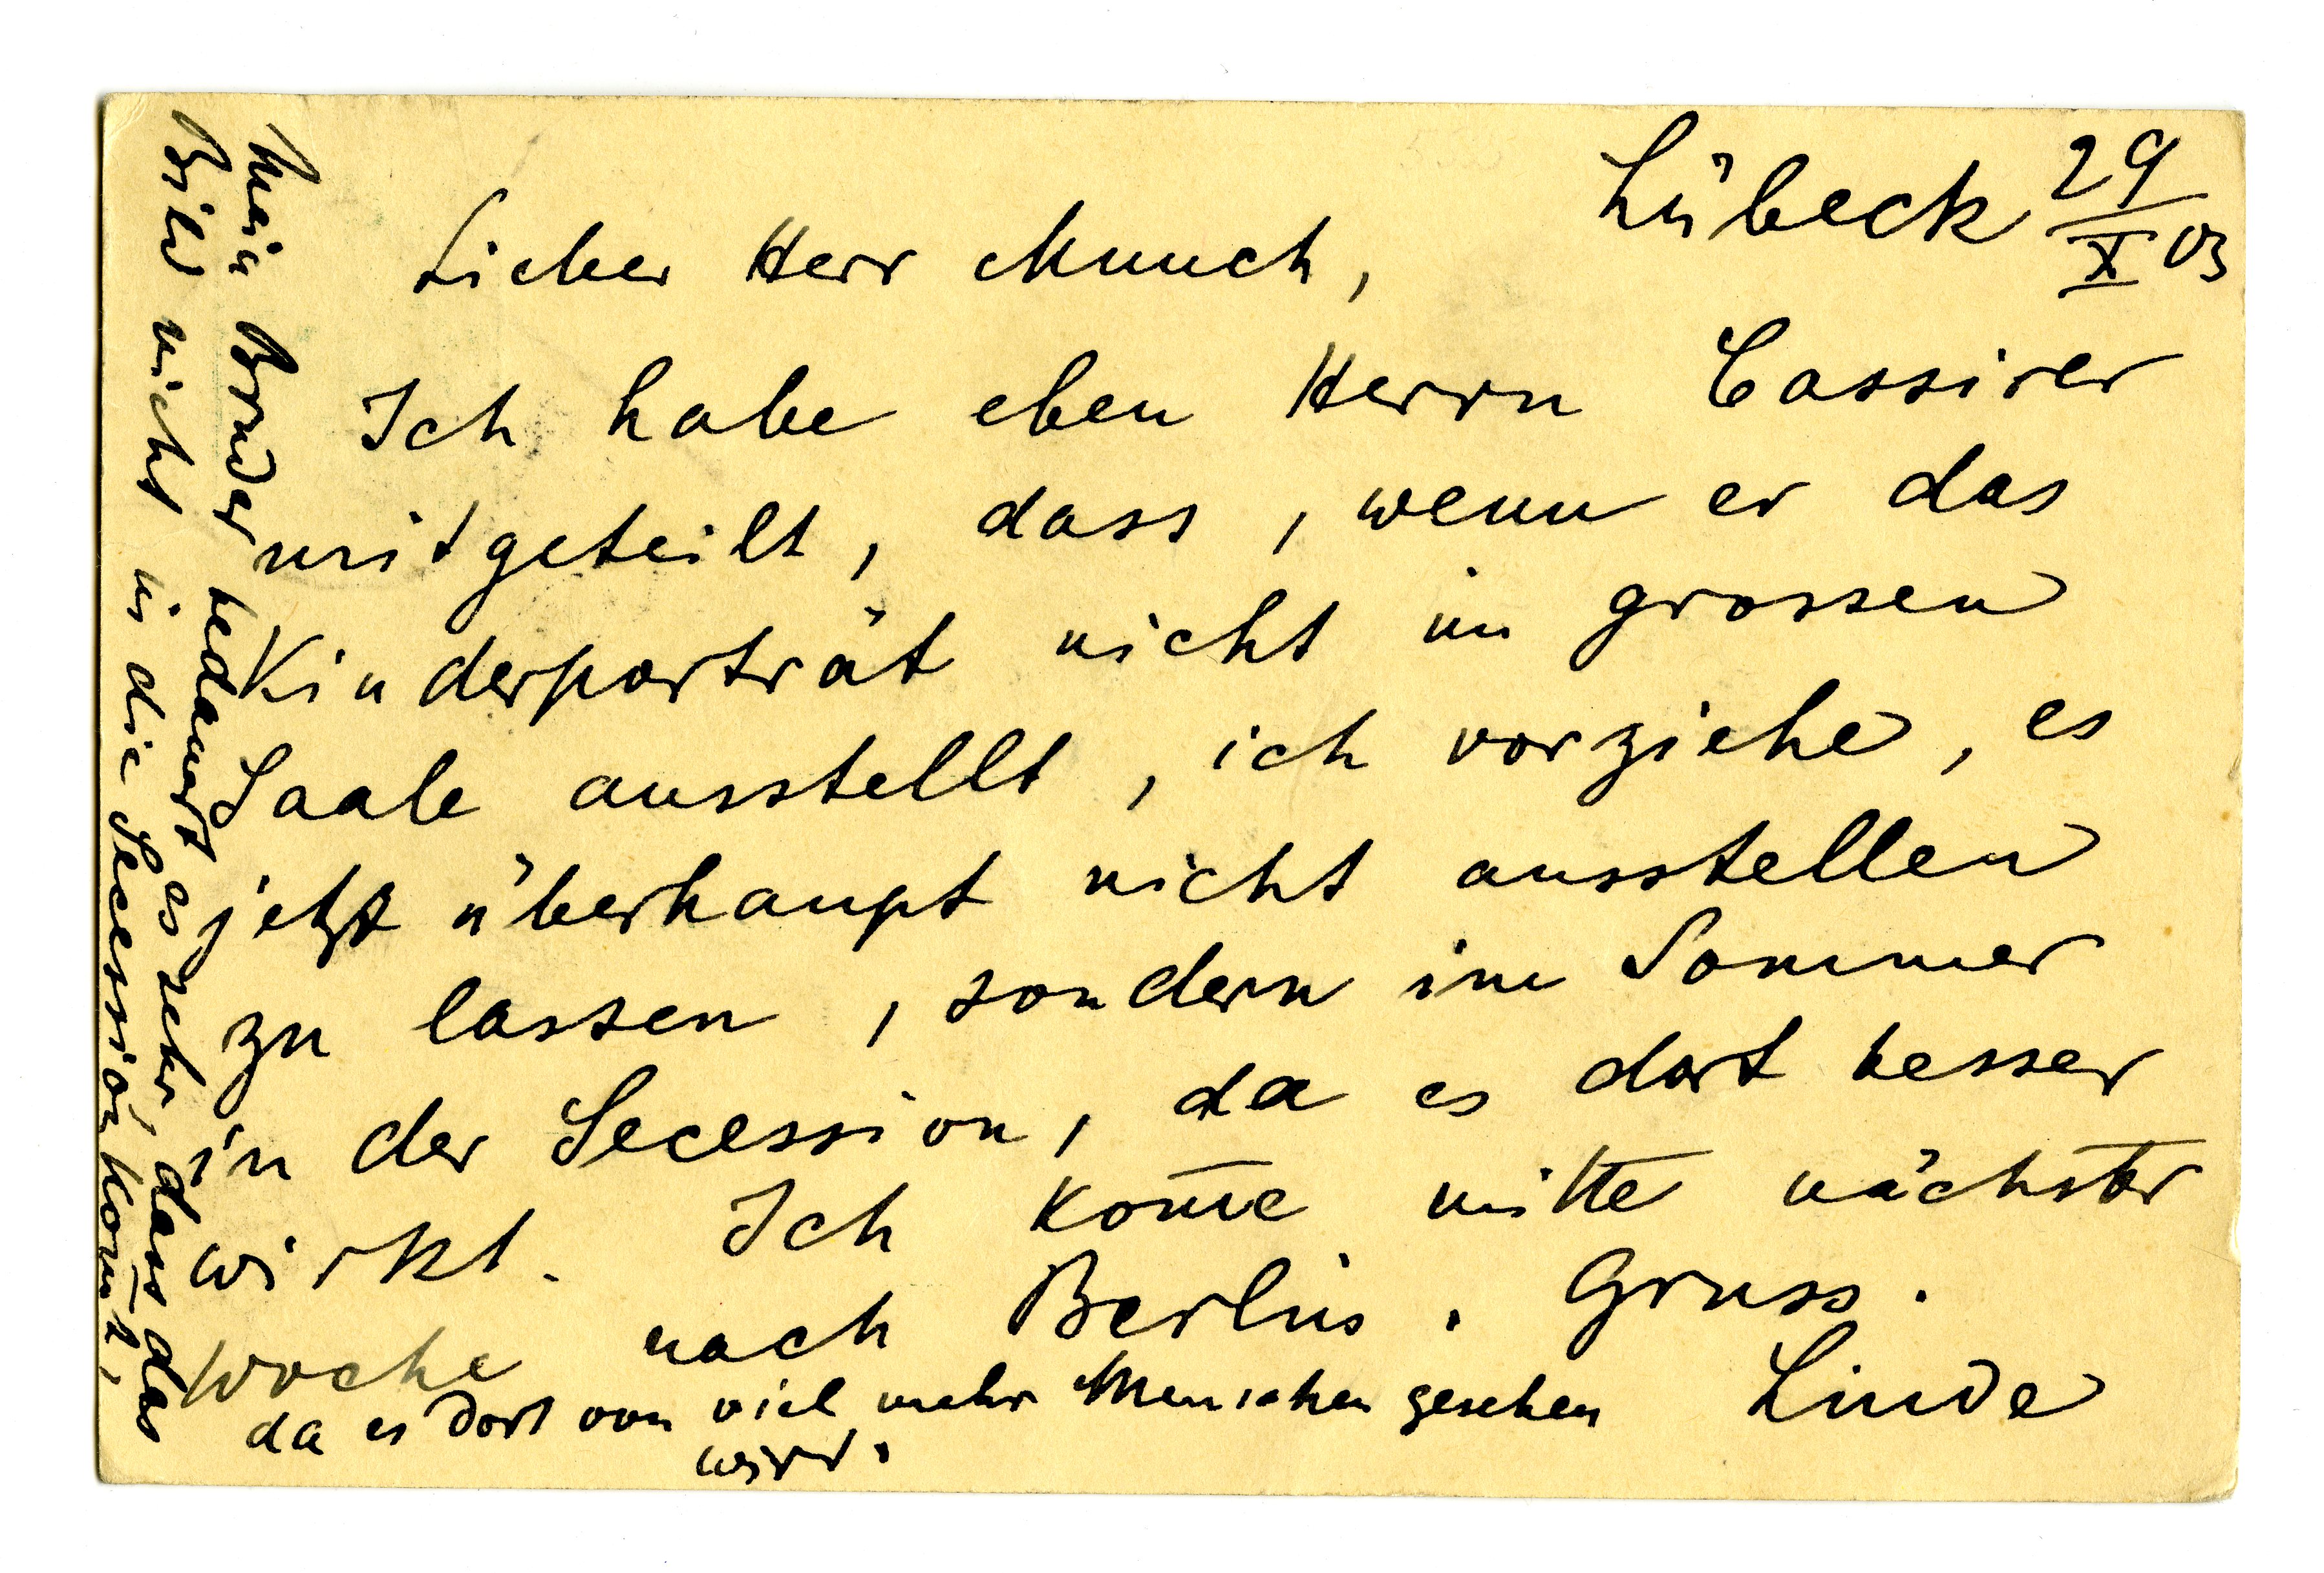 Lübeck 29/X 03
Lieber Herr Munch,
Ich habe eben Herrn Cassirer
mitgeteilt, dass, wenn er das
Kinderporträt nicht im grossen
Saale ausstellt, ich vorziehe, es
jetzt überhaupt nicht ausstellen
zu lassen, sondern im Sommer
in der Secession, da es dort besser
wirkt. Ich kom̅e mitte nächster
Woche nach Berlin. Gruss.
Linde
Mein Bruder bedauert es sehr, dass das
Bild nicht in die Secession kom̅t,
da es dort von viel mehr Menschen gesehen
wird.